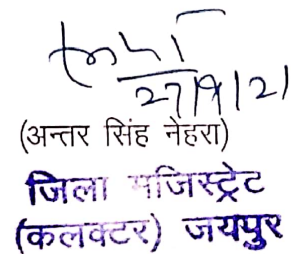 27/9/21
(अन्तर सिंह नेहरा)
जिला मजिस्ट्रेट
(कलक्टर) जयपुर